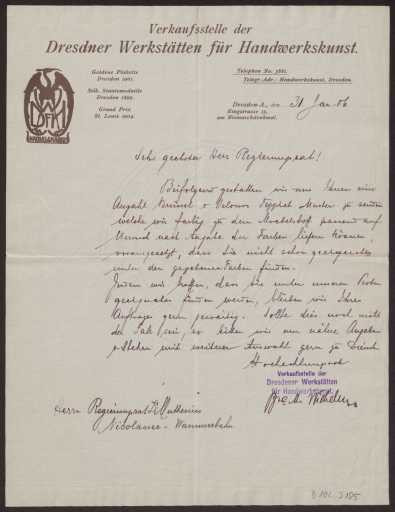 Verkaufsstelle der
Dresdner Werkstätten für Handwerkskunst.
Goldene Plakette
Dresden 1901.
Silb. Staatsmedaille
Dresden 1899.
Grand Prix
St. Louis 1904.
Telephon No.
Telegr.-Adr.: Handwerkskunst, Dresden.
Dresden-A., den 31 Jan. 06
Ringstrasse 15,
am Bismarckdenkmal.
DWFHK
Sehr geehrter Herr Regierungsrat!
Beifolgend gestatten wir uns Ihnen eine
Anzahl Brüssel & Velours Teppich Muster zu senden
welche wir farbig zu dem Möbelstoff passend auf
Wunsch nach Angabe der Farben liefern können,
vorausgesetzt, dass Sie nicht schon geeignetes
unter den gegebenen Farben finden.
Indem wir hoffen, dass Sie unter unseren Proben
geeignetes finden werden, bleiben wir Ihrer
Aufträge gern gewärtig. Sollte dies noch nicht
der Fall sein, so bitten wir um nähere Angaben
& stehen mit weiterer Auswahl gern zu Dienst
Hochachtungsvoll
Verkaufsstelle der
Dresdner Werkstätten
für Handwerkskunst
Herrn Regierungsrat Muthesius
Nicolassee - Wannseebahn